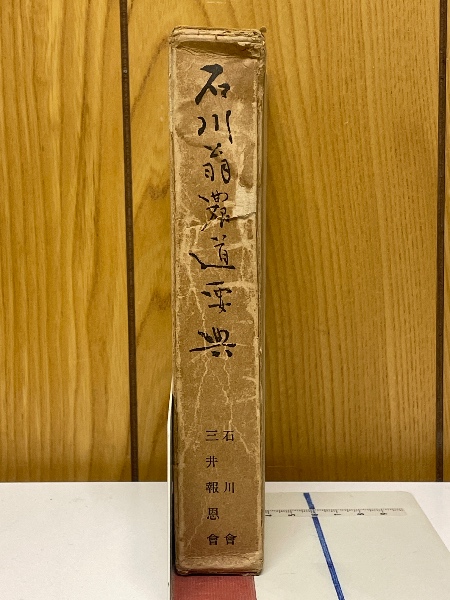 石川翁農道要典
石川會
三井報恩會